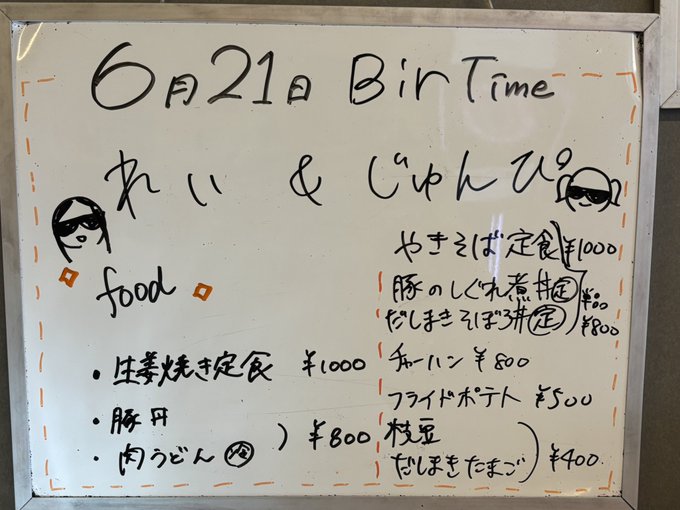 6月21日 Bir Time
れい & じゅんぴ
food
・生姜焼き定食 ¥1000
・豚丼
・肉うどん 冷 ) ¥800
やきそば定食 ¥1000
豚のしぐれ煮丼 定
だしまきそぼろ丼 定
¥800
チャーハン ¥800
フライドポテト ¥500
枝豆
だしまきたまご ) ¥400